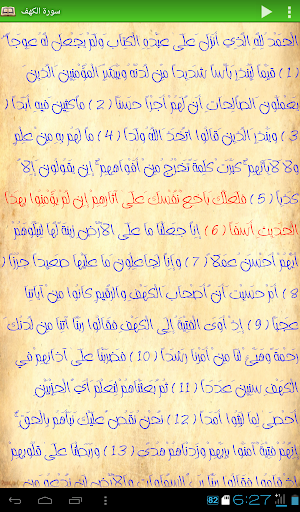 سورة الكهف
الحمد لله الذي أنزل على عبده الكتاب ولم يجعل له عوجا
(1) قيما لينذر بأسا شديدا من لدنه ويبشر المؤمنين الذين
يعملون الصالحات أن لهم أجرا حسنا (2) ماكثين فيه أبدا (
3) وينذر الذين قالوا اتخذ الله ولدا (4) ما لهم به من علم
ولا لآبائهم كبرت كلمة تخرج من أفواههم إن يقولون إلا
كذبا (5) فلعلك باخع نفسك على آثارهم إن لم يؤمنوا بهذا
الحديث أسفا (6) إنا جعلنا ما على الأرض زينة لها لنبلوهم
أيهم أحسن عملا (7) وإنا لجاعلون ما عليها صعيدا جرزا (
8) أم حسبت أن أصحاب الكهف والرقيم كانوا من آياتنا
عجبا (9) إذ أوى الفتية إلى الكهف فقالوا ربنا آتنا من لدنك
رحمة وهيئ لنا من أمرنا رشدا (10) فضربنا على آذانهم في
الكهف سنين عددا (11) ثم بعثناهم لنعلم أي الحزبين
أحصى لما لبثوا أمدا (12) نحن نقص عليك نبأهم بالحق
إنهم فتية آمنوا بربهم وزدناهم هدى (13) وربطنا على قلوبهم
إذ قاموا فقالوا ربنا رب السماوات والأرض لن ندعو من
82 6:27